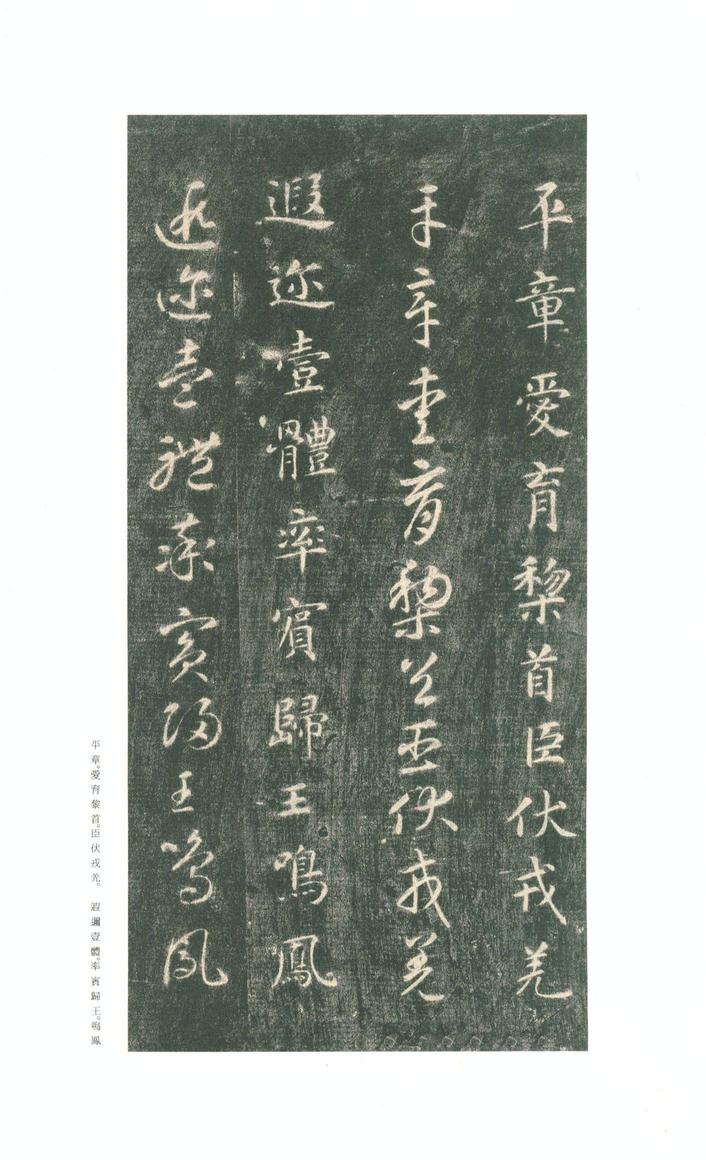 平章愛育黎首臣伏戎羌
平章愛育黎首臣伏戎羌
遐迩壹體率賓歸王鳴鳳
遐迩壹體率賓歸王鳴鳳
平章。愛育黎首。臣伏戎羌。 遐邇壹體。率賓歸王。鳴鳳